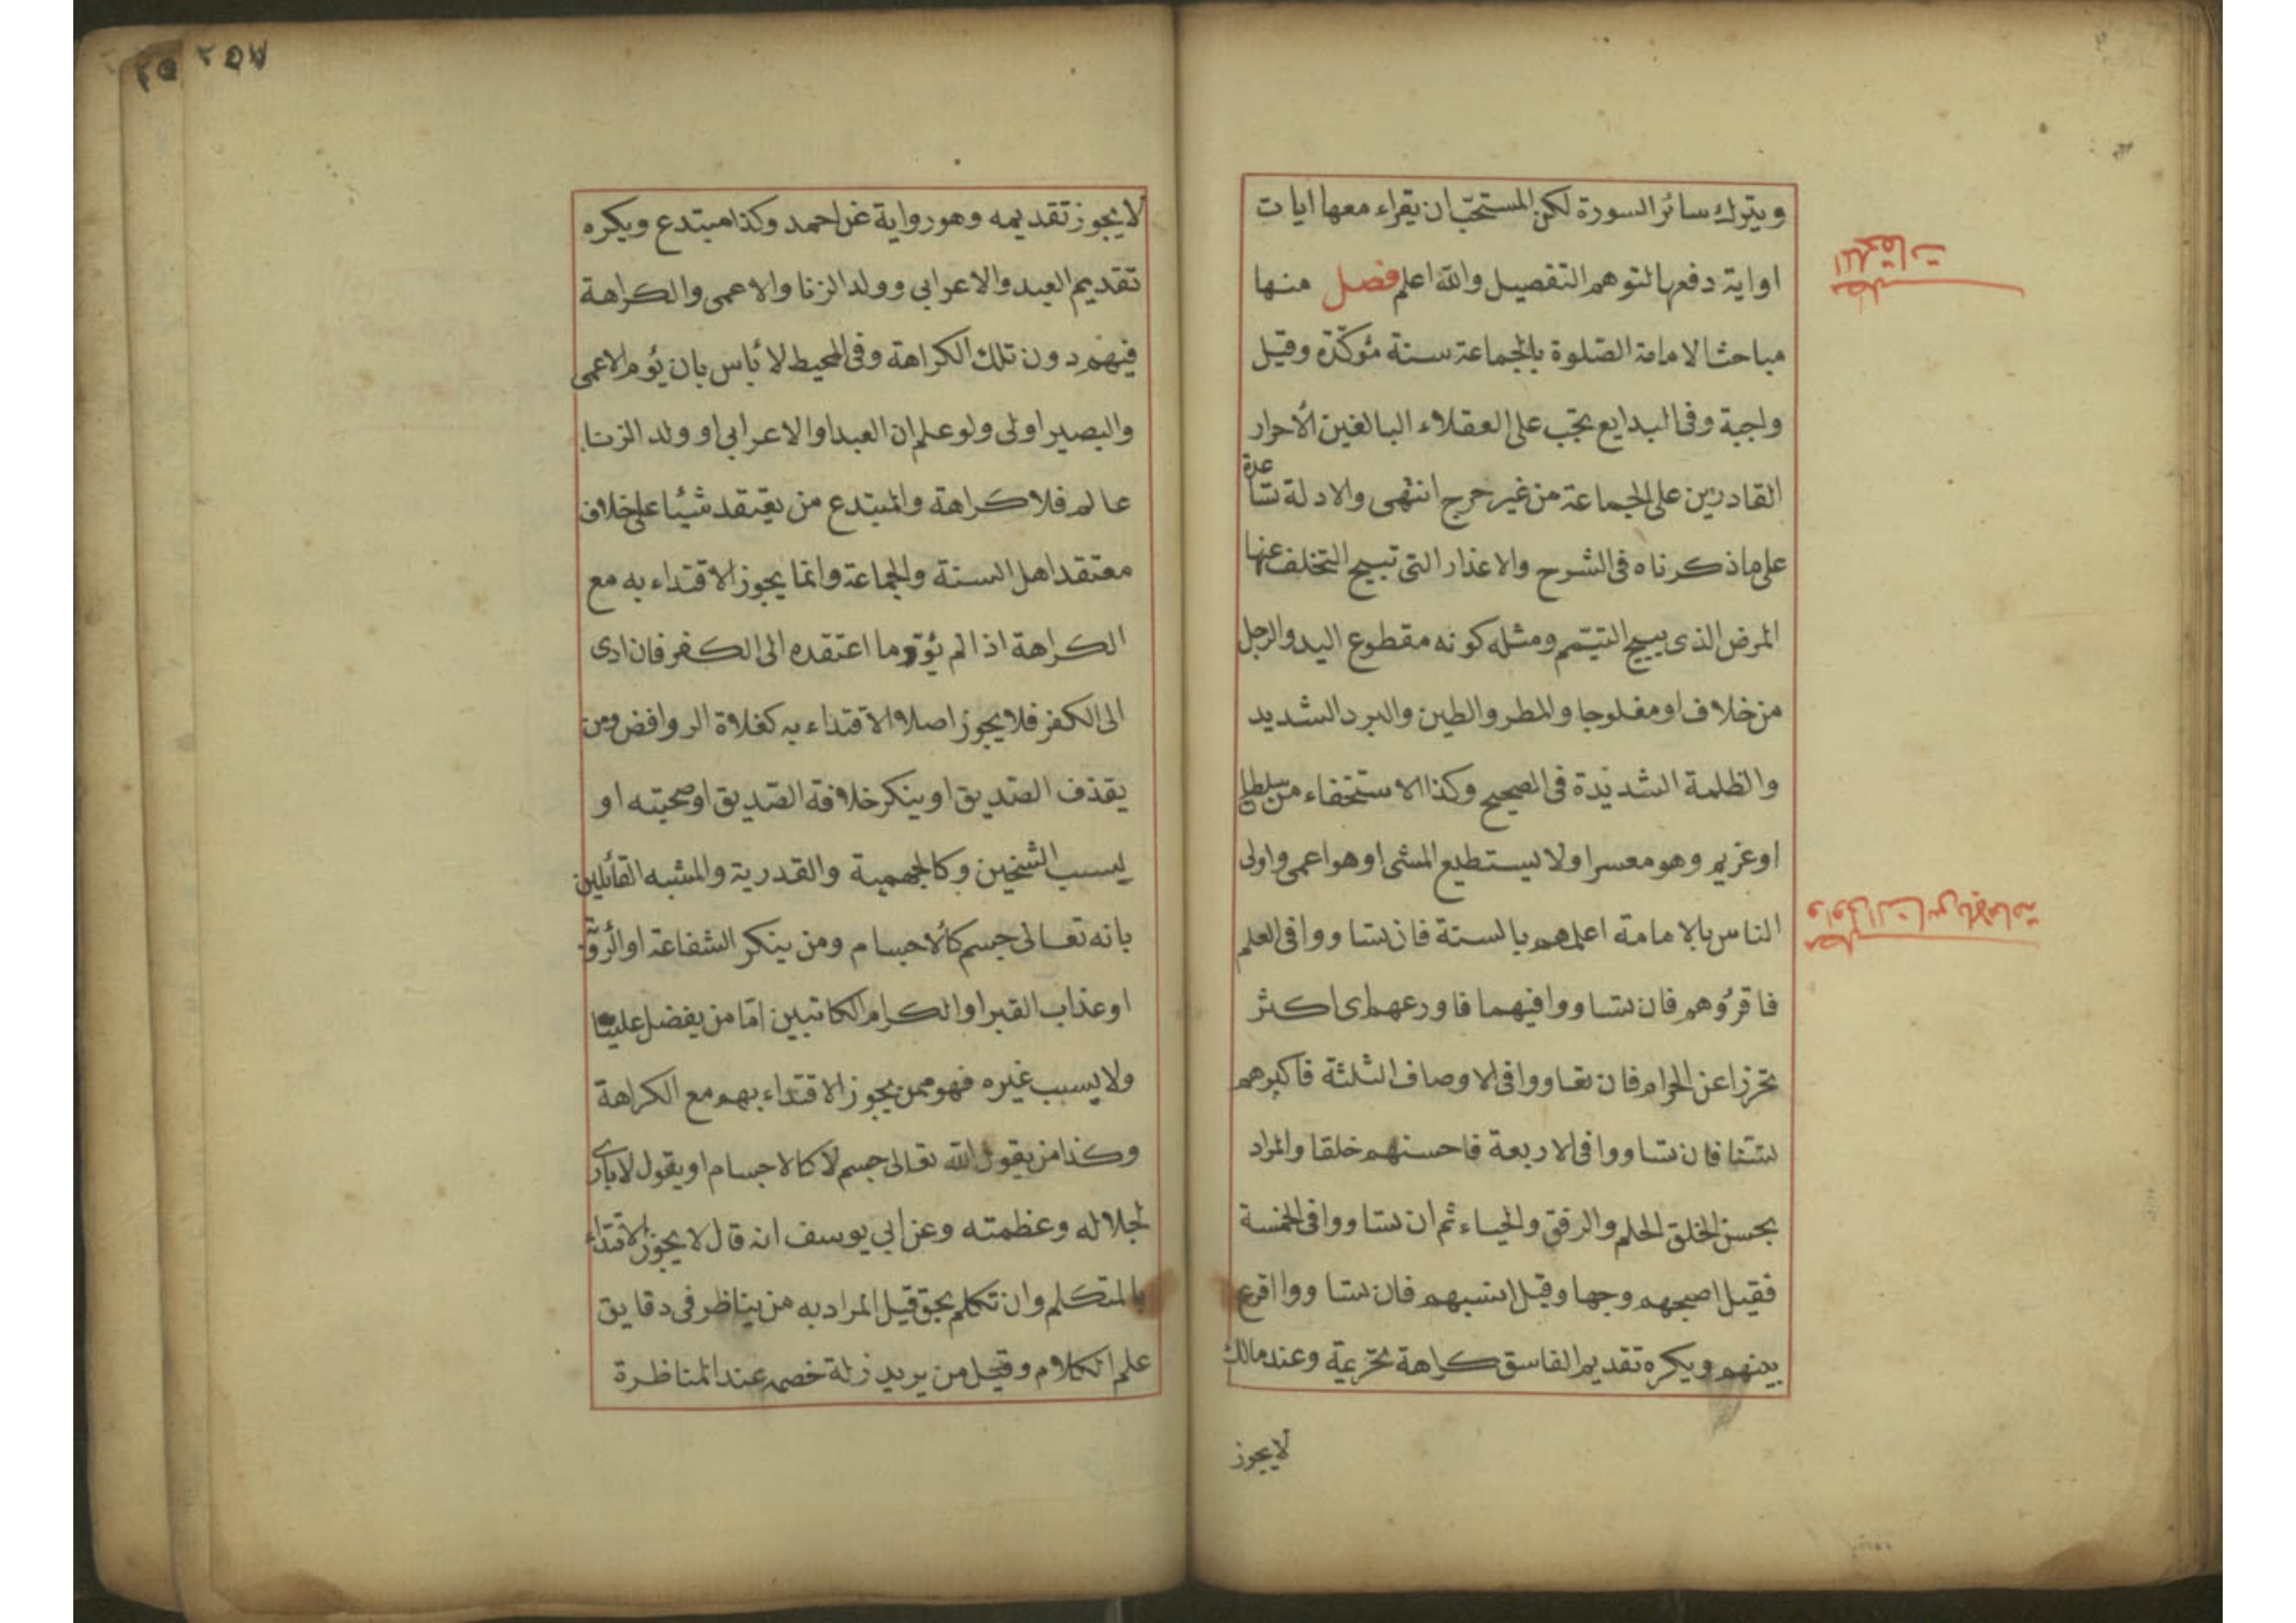 ويترك سائر السورة لكن المستحبّ ان يقراء معها ايات
او اية دفعها لتوهم التفصيل والله اعلم فصل منها
مباحث الامامة الصّلوة بالجماعة سنة مؤكّدة وقيل
واجبة وفى البدايع تجب على العقلاء البالغين الأحرار
القادرين على الجماعة من غير حرج انتهى والادلة تساعدة
على ما ذكرناه فى الشرح والاعذار التى تبيح التخلف عنها
المرض الذى يبيح التيمّم ومثله كونه مقطوع اليد والرجل
من خلاف او مفلوجا والمطر والطين والبرد الشديد
والظلمة الشديدة فى الصحيح وكذا الاستخفاء من سلطان
او غريم وهو معسر او لا يستطيع المشى او هو اعمى واولى
الناس بالامامة اعلمهم بالسنة فان تساووا فى العلم
فاقرؤهم فان تساووا فيهما فاورعهم اى اكثر
تحرزا عن الحرام فان تساووا فى الاوصاف الثلثة فاكبرهم
سنّا فان تساووا فى الاربعة فاحسنهم خلقا والمراد
بحسن الخلق الحلم والرفق والحياء ثم ان تساووا فى الخمسة
فقيل اصبحهم وجها وقيل انسبهم فان تساووا اقرع
بينهم ويكره تقديم الفاسق كراهة تحريمة وعند مالك
لا يجوز
مطلب
واولى الناس بالامامة
٢٥٨
لا يجوز تقديمه وهو رواية عن احمد وكذا مبتدع ويكره
تقديم العبد والاعرابي وولد الزنا والاعمى والكراهة
فيهم دون تلك الكراهة وفى المحيط لا بأس بان يؤم الاعمى
والبصير اولى ولو علم ان العبد او الاعرابي او ولد الزنا
عالم فلا كراهة والمبتدع من يعتقد شيئا على خلاف
معتقد اهل السنة والجماعة وانما يجوز الاقتداء به مع
الكراهة اذا لم يؤد ما اعتقده الى الكفر فان ادى
الى الكفر فلا يجوز اصلا الاقتداء به كغلاة الروافض ومن
يقذف الصّديق او ينكر خلافة الصّديق او صحبته او
ليسب الشيخين وكالجهمية والقدرية والمشبه القائلين
بانه تعالى جسم كالأجسام ومن ينكر الشفاعة او الرؤية
او عذاب القبر او الكرام الكاتبين امّا من يفضل عليّا
ولا يسب غيره فهو ممن يجوز الاقتداء بهم مع الكراهة
وكذا من يقول الله تعالى جسم لا كالاجسام او يقول لا يرى
لجلاله وعظمته وعن ابي يوسف انه قال لا يجوز الاقتداء
بالمتكلم وان تكلم بحق قيل المراد به من يناظر فى دقايق
علم الكلام وقيل من يريد زلة خصمه عند المناظرة